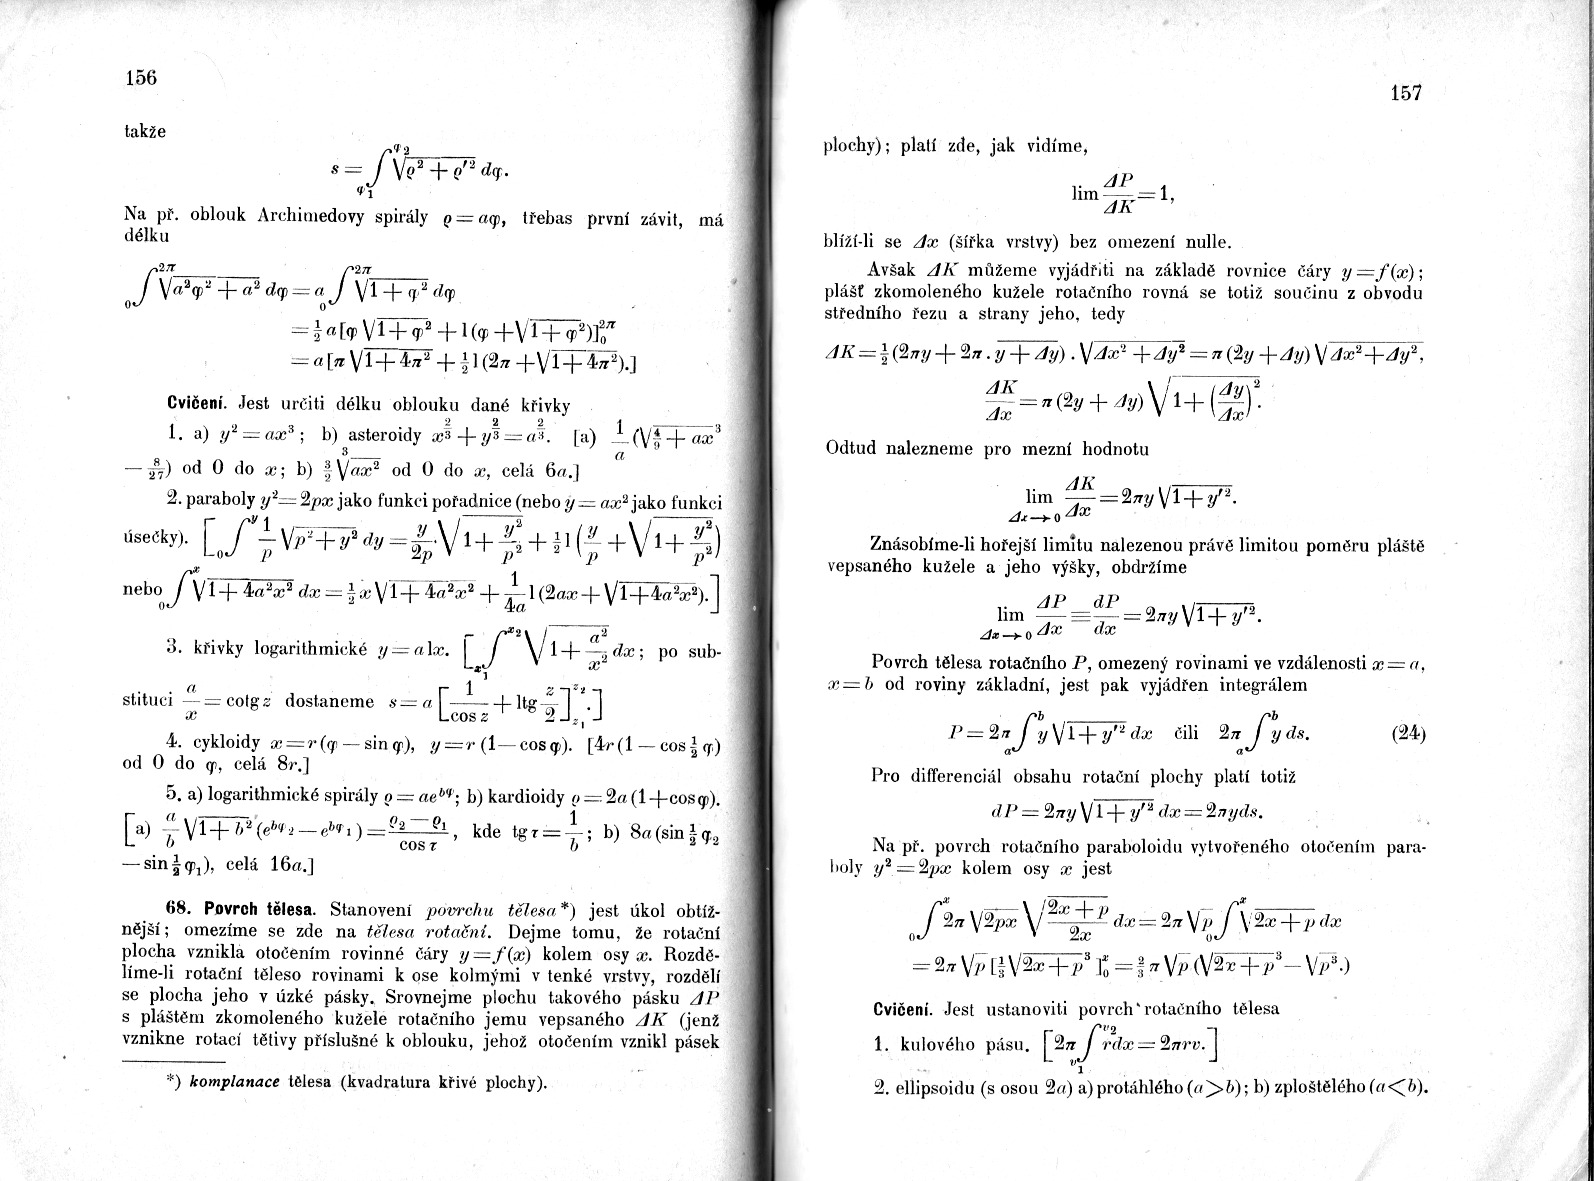 156
takže
s = ∫_{φ₁}^{φ₂} √(ϱ² + ϱ′²) dφ.
Na př. oblouk Archimedovy spirály ϱ = aφ, třebas první závit, má
délku
₀∫^{2π} √(a²φ² + a²) dφ = a ₀∫^{2π} √(1 + φ²) dφ
= ½ a [φ √(1 + φ²) + l (φ + √(1 + φ²))]₀^{2π}
= a [π √(1 + 4π²) + ½ l (2π + √(1 + 4π²).]
Cvičení. Jest určiti délku oblouku dané křivky
1. a) y² = ax³; b) asteroidy x^{2/3} + y^{2/3} = a^{2/3}. [a) 1/a (√(4/9 + ax)³
— 8/27) od 0 do x; b) 3/2 ∛(ax²) od 0 do x, celá 6a.]
2. paraboly y² = 2px jako funkci pořadnice (nebo y = ax² jako funkci
úsečky). [ ₀∫^y 1/p √(p² + y²) dy = y/2p · √(1 + y²/p²) + ½ l (y/p + √(1 + y²/p²))
nebo ₀∫^x √(1 + 4a²x²) dx = ½ x √(1 + 4a²x²) + 1/4a l (2ax + √(1 + 4a²x²). ]
3. křivky logarithmické y = a lx. [ ∫_{x₁}^{x₂} √(1 + a²/x²) dx; po sub-
stituci a/x = cotg z dostaneme s = a [ 1/cos z + l tg z/2 ]_{z₁}^{z₂}. ]
4. cykloidy x = r (φ — sin φ), y = r (1 — cos φ). [4r (1 — cos ½ φ)
od 0 do φ, celá 8r.]
5. a) logarithmické spirály ϱ = ae^{bφ}; b) kardioidy ϱ = 2a (1 + cos φ).
[ a) a/b √(1 + b²) (e^{bφ₂} — e^{bφ₁}) = (ϱ₂ — ϱ₁)/cos τ, kde tg τ = 1/b; b) 8a (sin ½ φ₂
— sin ½ φ₁), celá 16a.]
68. Povrch tělesa. Stanovení povrchu tělesa*) jest úkol obtíž-
nější; omezíme se zde na tělesa rotační. Dejme tomu, že rotační
plocha vznikla otočením rovinné čáry y = f(x) kolem osy x. Rozdě-
líme-li rotační těleso rovinami k ose kolmými v tenké vrstvy, rozdělí
se plocha jeho v úzké pásky. Srovnejme plochu takového pásku ΔP
s pláštěm zkomoleného kužele rotačního jemu vepsaného ΔK (jenž
vznikne rotací tětivy příslušné k oblouku, jehož otočením vznikl pásek
*) komplanace tělesa (kvadratura křivé plochy).
157
plochy); platí zde, jak vidíme,
lim ΔP/ΔK = 1,
blíží-li se Δx (šířka vrstvy) bez omezení nulle.
Avšak ΔK můžeme vyjádřiti na základě rovnice čáry y = f(x);
plášť zkomoleného kužele rotačního rovná se totiž součinu z obvodu
středního řezu a strany jeho, tedy
ΔK = ½ (2πy + 2π . y + Δy) . √(Δx² + Δy²) = π (2y + Δy) √(Δx² + Δy²,
ΔK/Δx = π (2y + Δy) √(1 + (Δy/Δx)²).
Odtud nalezneme pro mezní hodnotu
lim_{Δx→0} ΔK/Δx = 2πy √(1 + y′²).
Znásobíme-li hořejší limitu nalezenou právě limitou poměru pláště
vepsaného kužele a jeho výšky, obdržíme
lim_{Δx→0} ΔP/Δx = dP/dx = 2πy √(1 + y′²).
Povrch tělesa rotačního P, omezený rovinami ve vzdálenosti x = a,
x = b od roviny základní, jest pak vyjádřen integrálem
P = 2π ₐ∫^b y √(1 + y′²) dx čili 2π ₐ∫^b y ds. (24)
Pro differenciál obsahu rotační plochy platí totiž
dP = 2πy √(1 + y′²) dx = 2πyds.
Na př. povrch rotačního paraboloidu vytvořeného otočením para-
boly y² = 2px kolem osy x jest
₀∫^x 2π √(2px) √((2x + p)/2x) dx = 2π √p ₀∫^x √(2x + p) dx
= 2π √p [⅓ √(2x + p)³]₀^x = ⅔ π √p (√(2x + p)³ — √p³.)
Cvičení. Jest ustanoviti povrch rotačního tělesa
1. kulového pásu. [ 2π ∫_{v₁}^{v₂} rdx = 2πrv. ]
2. ellipsoidu (s osou 2a) a) protáhlého (a > b); b) zploštělého (a < b).